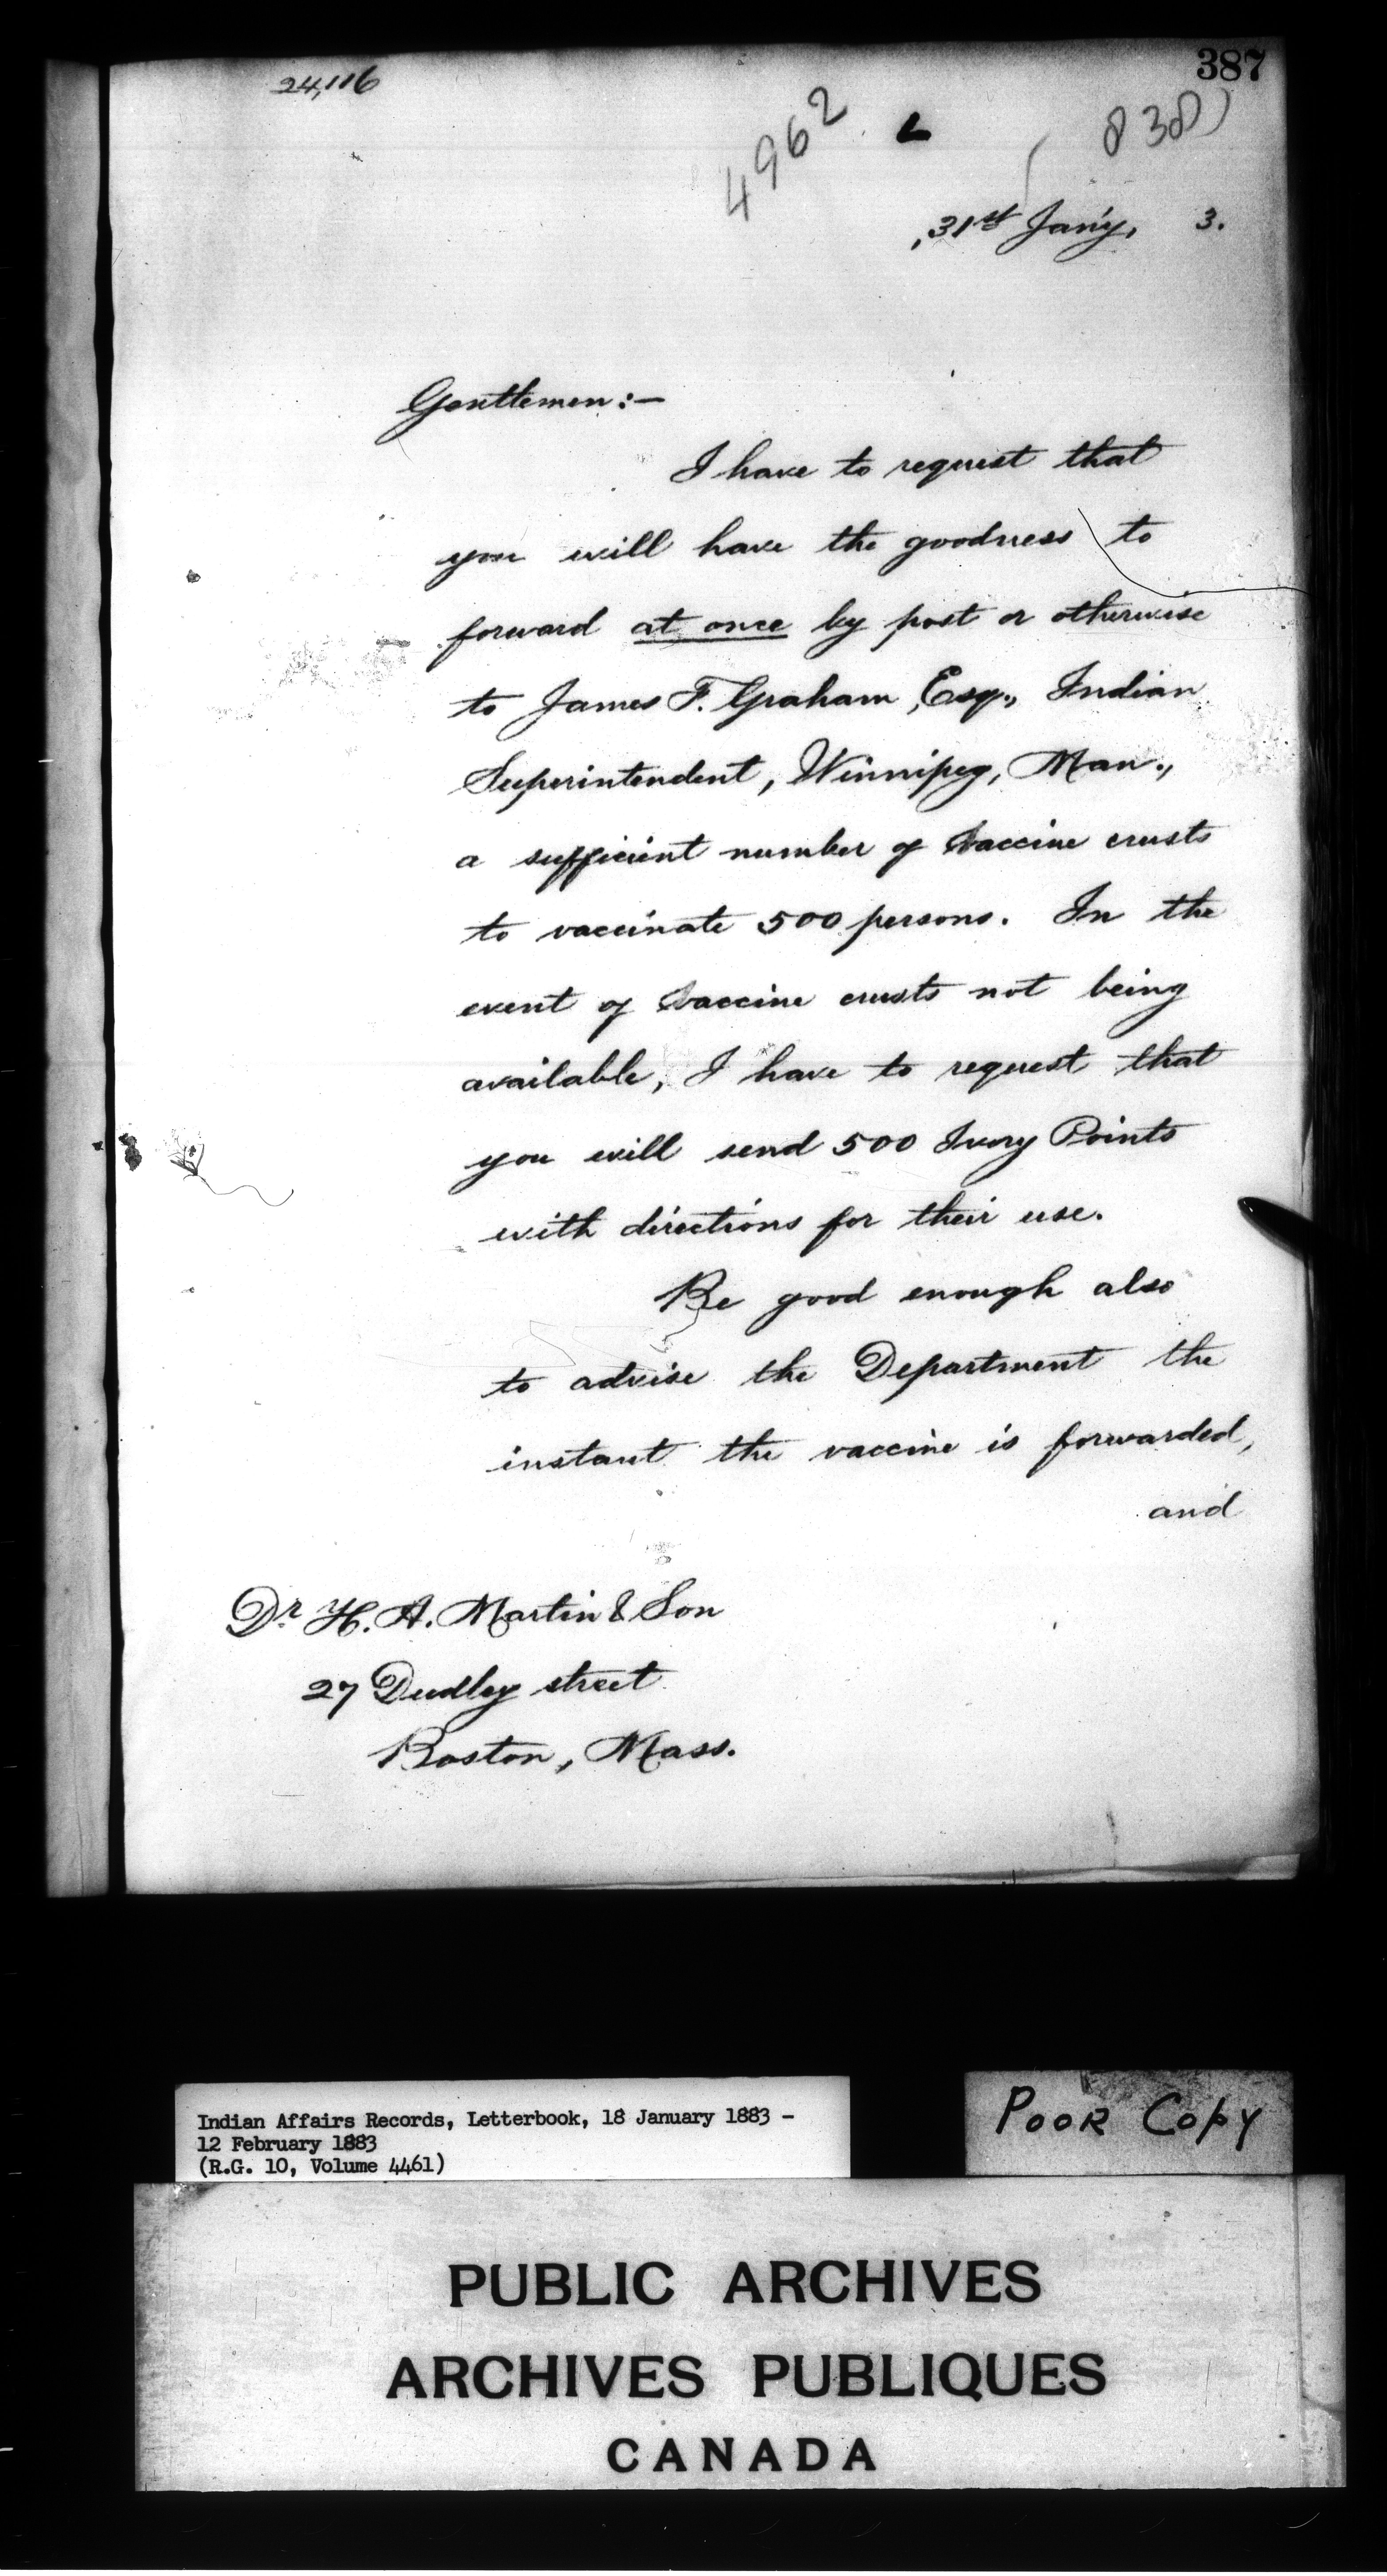 387
24,116
4962
L
838)
31st Jan'y, 3.
Gentlemen:—
I have to request that
you will have the goodness to
forward at once by post or otherwise
to James F. Graham, Esq., Indian
Superintendent, Winnipeg, Man.,
a sufficient number of vaccine crusts
to vaccinate 500 persons. In the
event of vaccine crusts not being
available, I have to request that
you will send 500 Ivory Points
with directions for their use.
Be good enough also
to advise the Department the
instant the vaccine is forwarded,
and
Dr H. A. Martin & Son
27 Dudley street
Boston, Mass.
Indian Affairs Records, Letterbook, 18 January 1883 -
12 February 1883
(R.G. 10, Volume 4461)
POOR COPY
PUBLIC ARCHIVES
ARCHIVES PUBLIQUES
CANADA